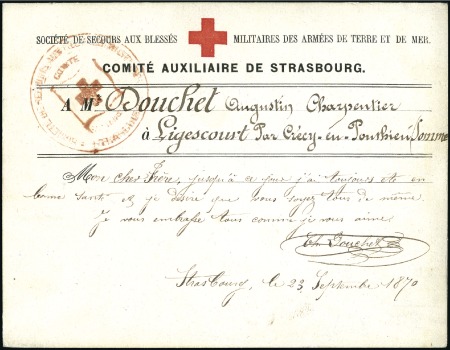 SOCIÉTÉ DE SECOURS AUX BLESSÉS MILITAIRES DES ARMÉES DE TERRE ET DE MER.
COMITÉ AUXILIAIRE DE STRASBOURG.
A Mr Douchet Augustin Charpentier
à Ligescourt Par Crécy-en-Ponthieu Somme
Mon cher Frère, jusqu'à ce jour j'ai toujours été en
bonne santé et je désire que vous soyez tous de même.
Je vous embrasse tous comme je vous aime.
Douchet
Strasbourg, le 23 Septembre 1870